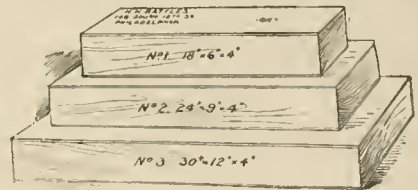 H. H. BATTLES
108 SOUTH 12TH ST
PHILADELPHIA
Nº1 18"×6"×4"
Nº2 24"×9"×4"
Nº3 30"×12"×4"